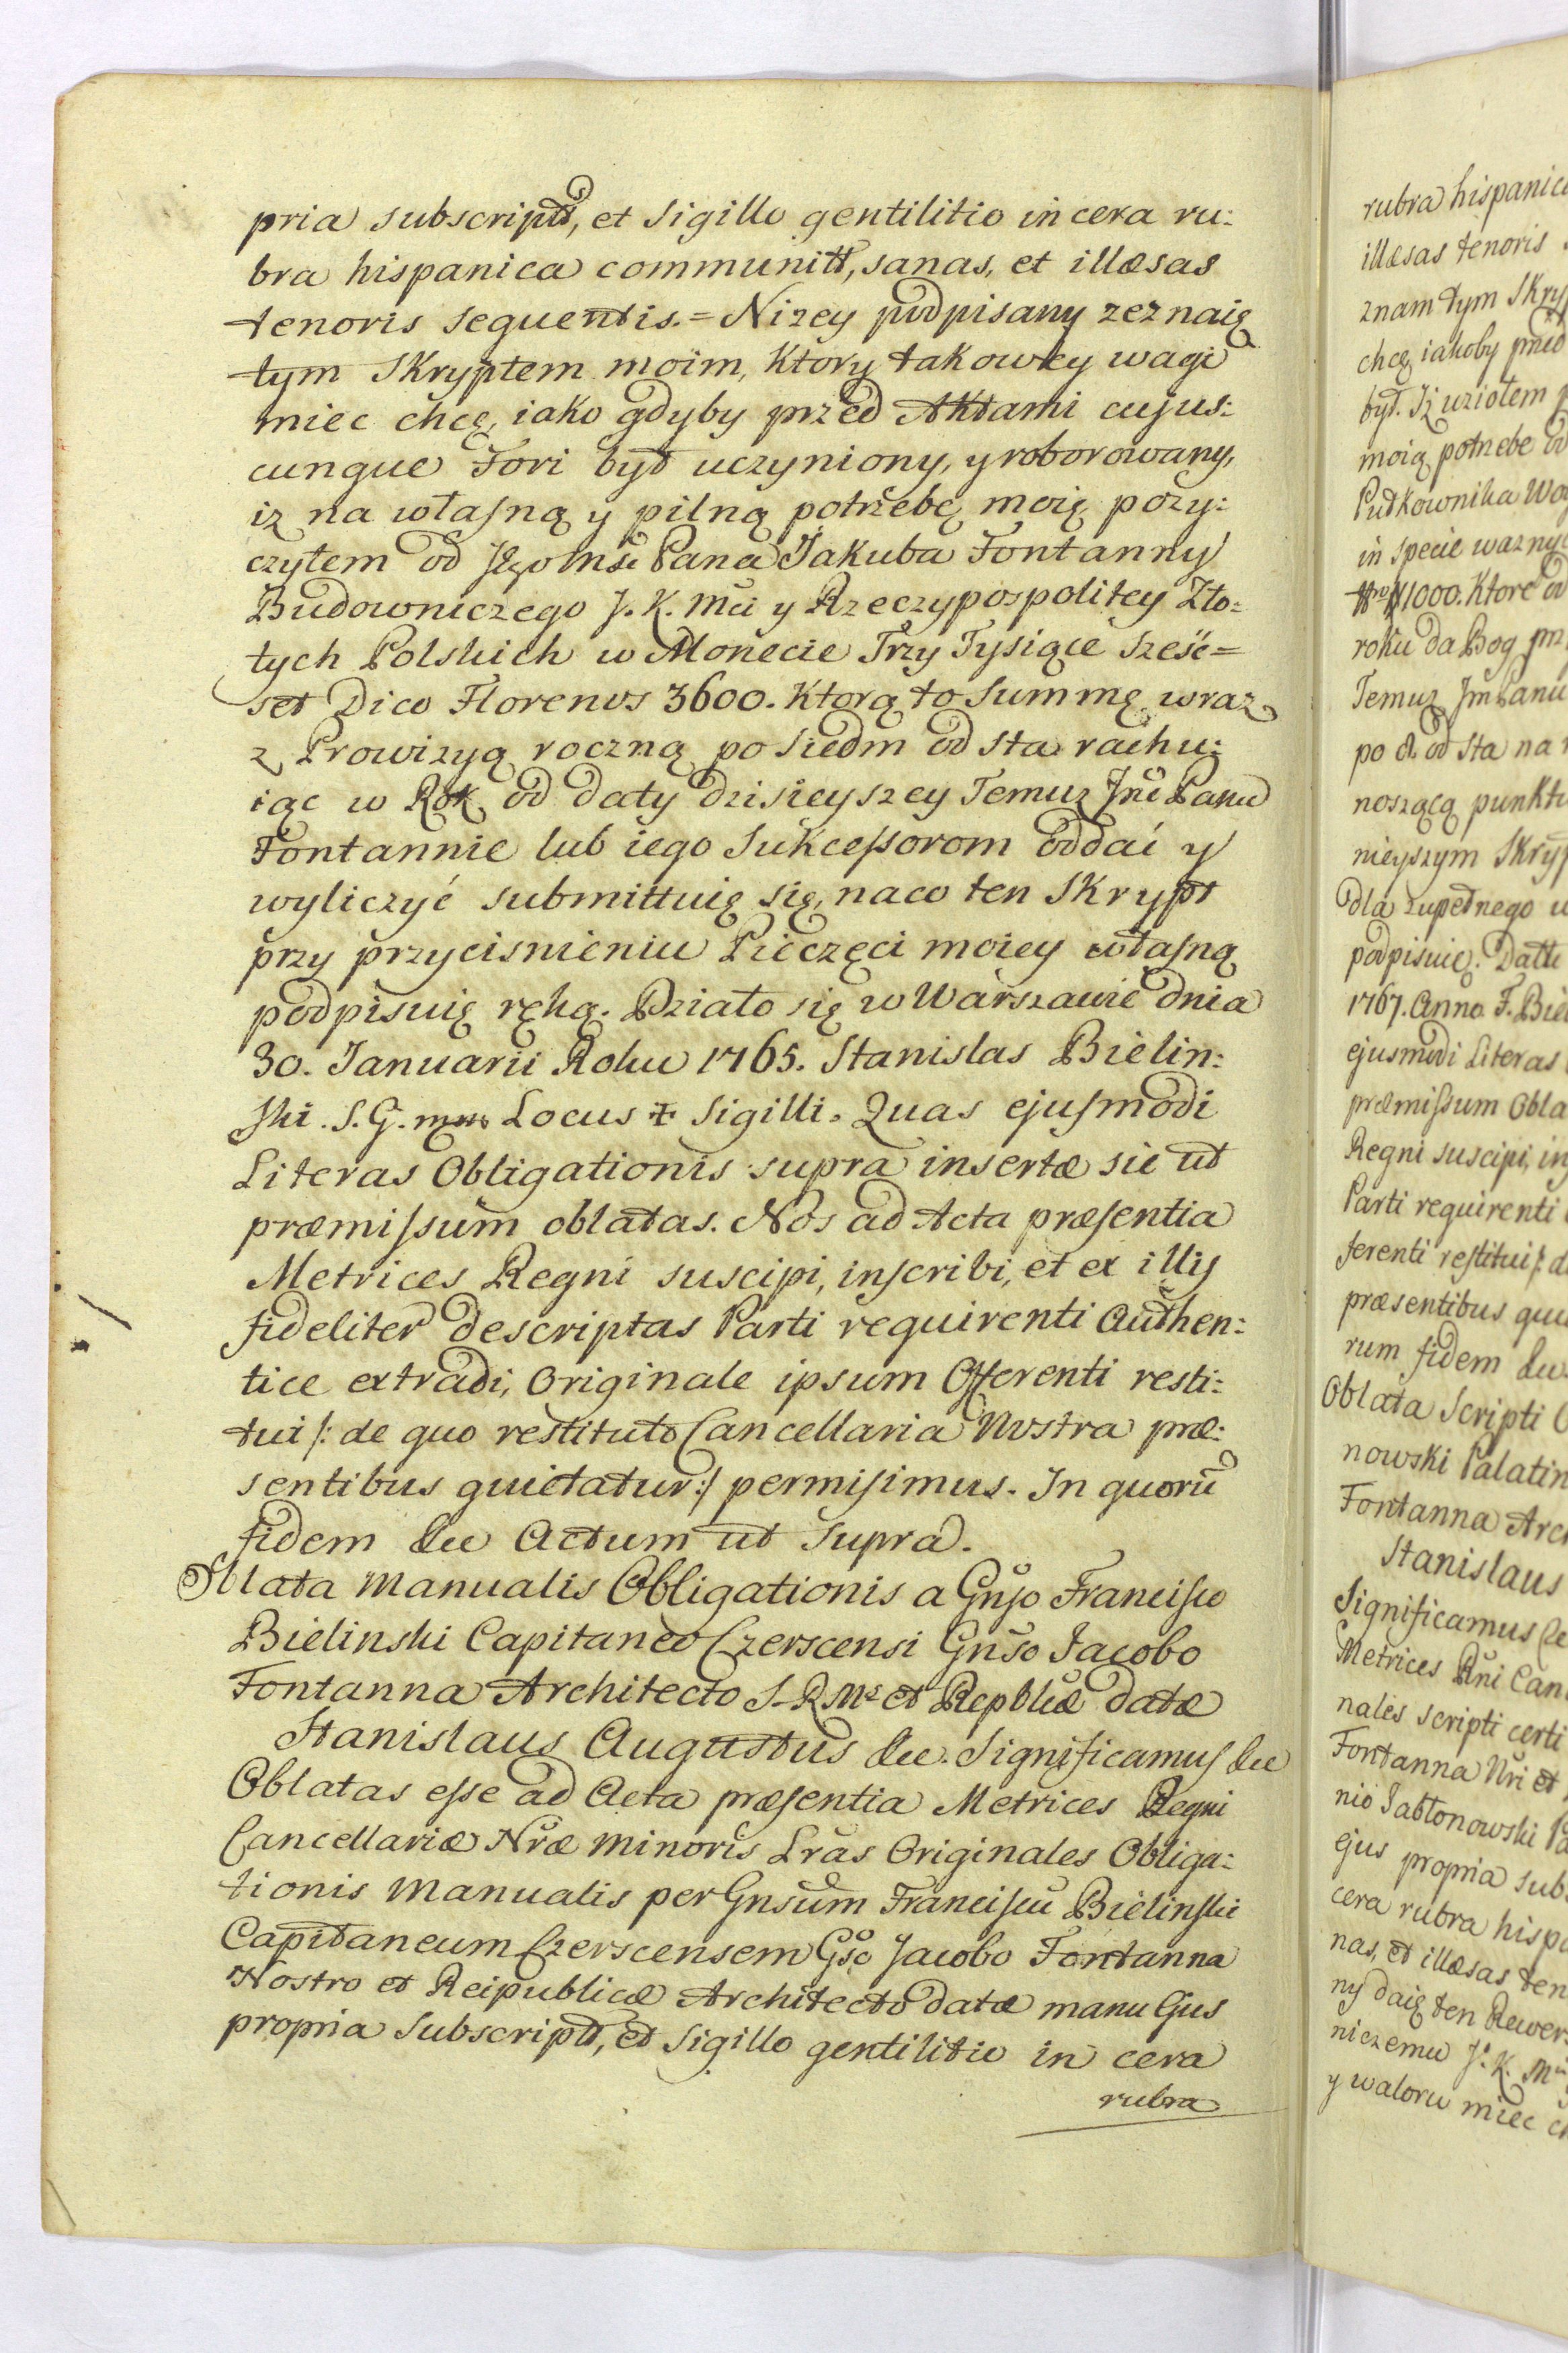 pria subscriptt, et Sigillo gentilitio in cera ru:
bra hispanica communitt, sanas, et illæsas
tenoris sequentis. = Nizey podpisany zeznaię
tym Skryptem moim, ktory takowey wagi
miec chcę, iako gdyby przed Aktami cujus:
cunque Fori był uczyniony, y roborowany,
iz na własną y pilną potrzebę moię pozy:
czyłem od Jego Mści Pana Jakuba Fontanny
Budowniczego J. K. Mci y Rzeczypospolitey Zło:
tych Polskich w Monecie Trzy Tysiące sześć=
set Dico Florenos 3600. Ktorą to Summę wraz
z Prowizyą roczną po siedm od sta rachu:
iąc w Rok od daty dzisieyszey Temuz Jmć Panu
Fontannie lub iego Sukcessorom oddać y
wyliczyć submittuię się, na co ten Skrypt
przy przycisnieniu Pieczęci moiey własną
podpisuię ręką. Działo się w Warszawie dnia
30. Januarii Roku 1765. Stanislas Bielin:
ski. S. G. mpp Locus ✠ Sigilli. Quas ejusmodi
Literas Obligationis supra insertæ sic ut
præmissum oblatas. Nos ad Acta præsentia
Metrices Regni suscipi, inscribi, et ex illis
fideliter descriptas Parti requirenti Authen:
tice extradi, Originale ipsum Offerenti resti:
tui /: de quo restituto Cancellaria Nostra præ:
sentibus quietatur :/ permisimus. In quorū
fidem &c Actum ut Supra.
Oblata Manualis Obligationis a Gnso Francisco
Bielinski Capitaneo Czerscensi Gnso Jacobo
Fontanna Architecto S. R. Ms et Reipblicæ datæ
Stanislaus Augustus &c. Significamus &c
Oblatas esse ad Acta præsentia Metrices Regni
Cancellariæ Nræ Minoris Lras Originales Obliga:
tionis Manualis per Gnsum Franciscū Bielinski
Capitaneum Czerscensem Gso Jacobo Fontanna
Nostro et Reipublicæ Architecto datæ manu Ejus
propria Subscriptt, et Sigillo gentilitio in cera
rubra
rubra hispanica
illæsas tenoris
znam tym Skry
chcę, iakoby przed
był. Iż wziołem
moią potrzebę od
Pułkownika Wo
in specie waznyc
1000. Ktore od
roku da Bog prz
Temuz Jm Panu
po 8. od Sta na
noszącą punktu
nieyszym Skryp
dla zupełnego w
podpisuię. Datt
1767. Anno. F. Biel
ejusmodi Literas
præmissum Obla
Regni suscipi, in
Parti requirenti
ferenti restitui /: d
præsentibus qui
rum fidem &c
Oblata Scripti
nowski Palatin
Fontanna Arc
Stanislaus
Significamus
Metrices Rni Can
nales scripti certi
Fontanna Nri et
nio Jabłonowski Pa
ejus propria sub
cera rubra hispa
nas, et illæsas ten
ny daię ten Rewers
niczemu J. K. M
y waloru miec c